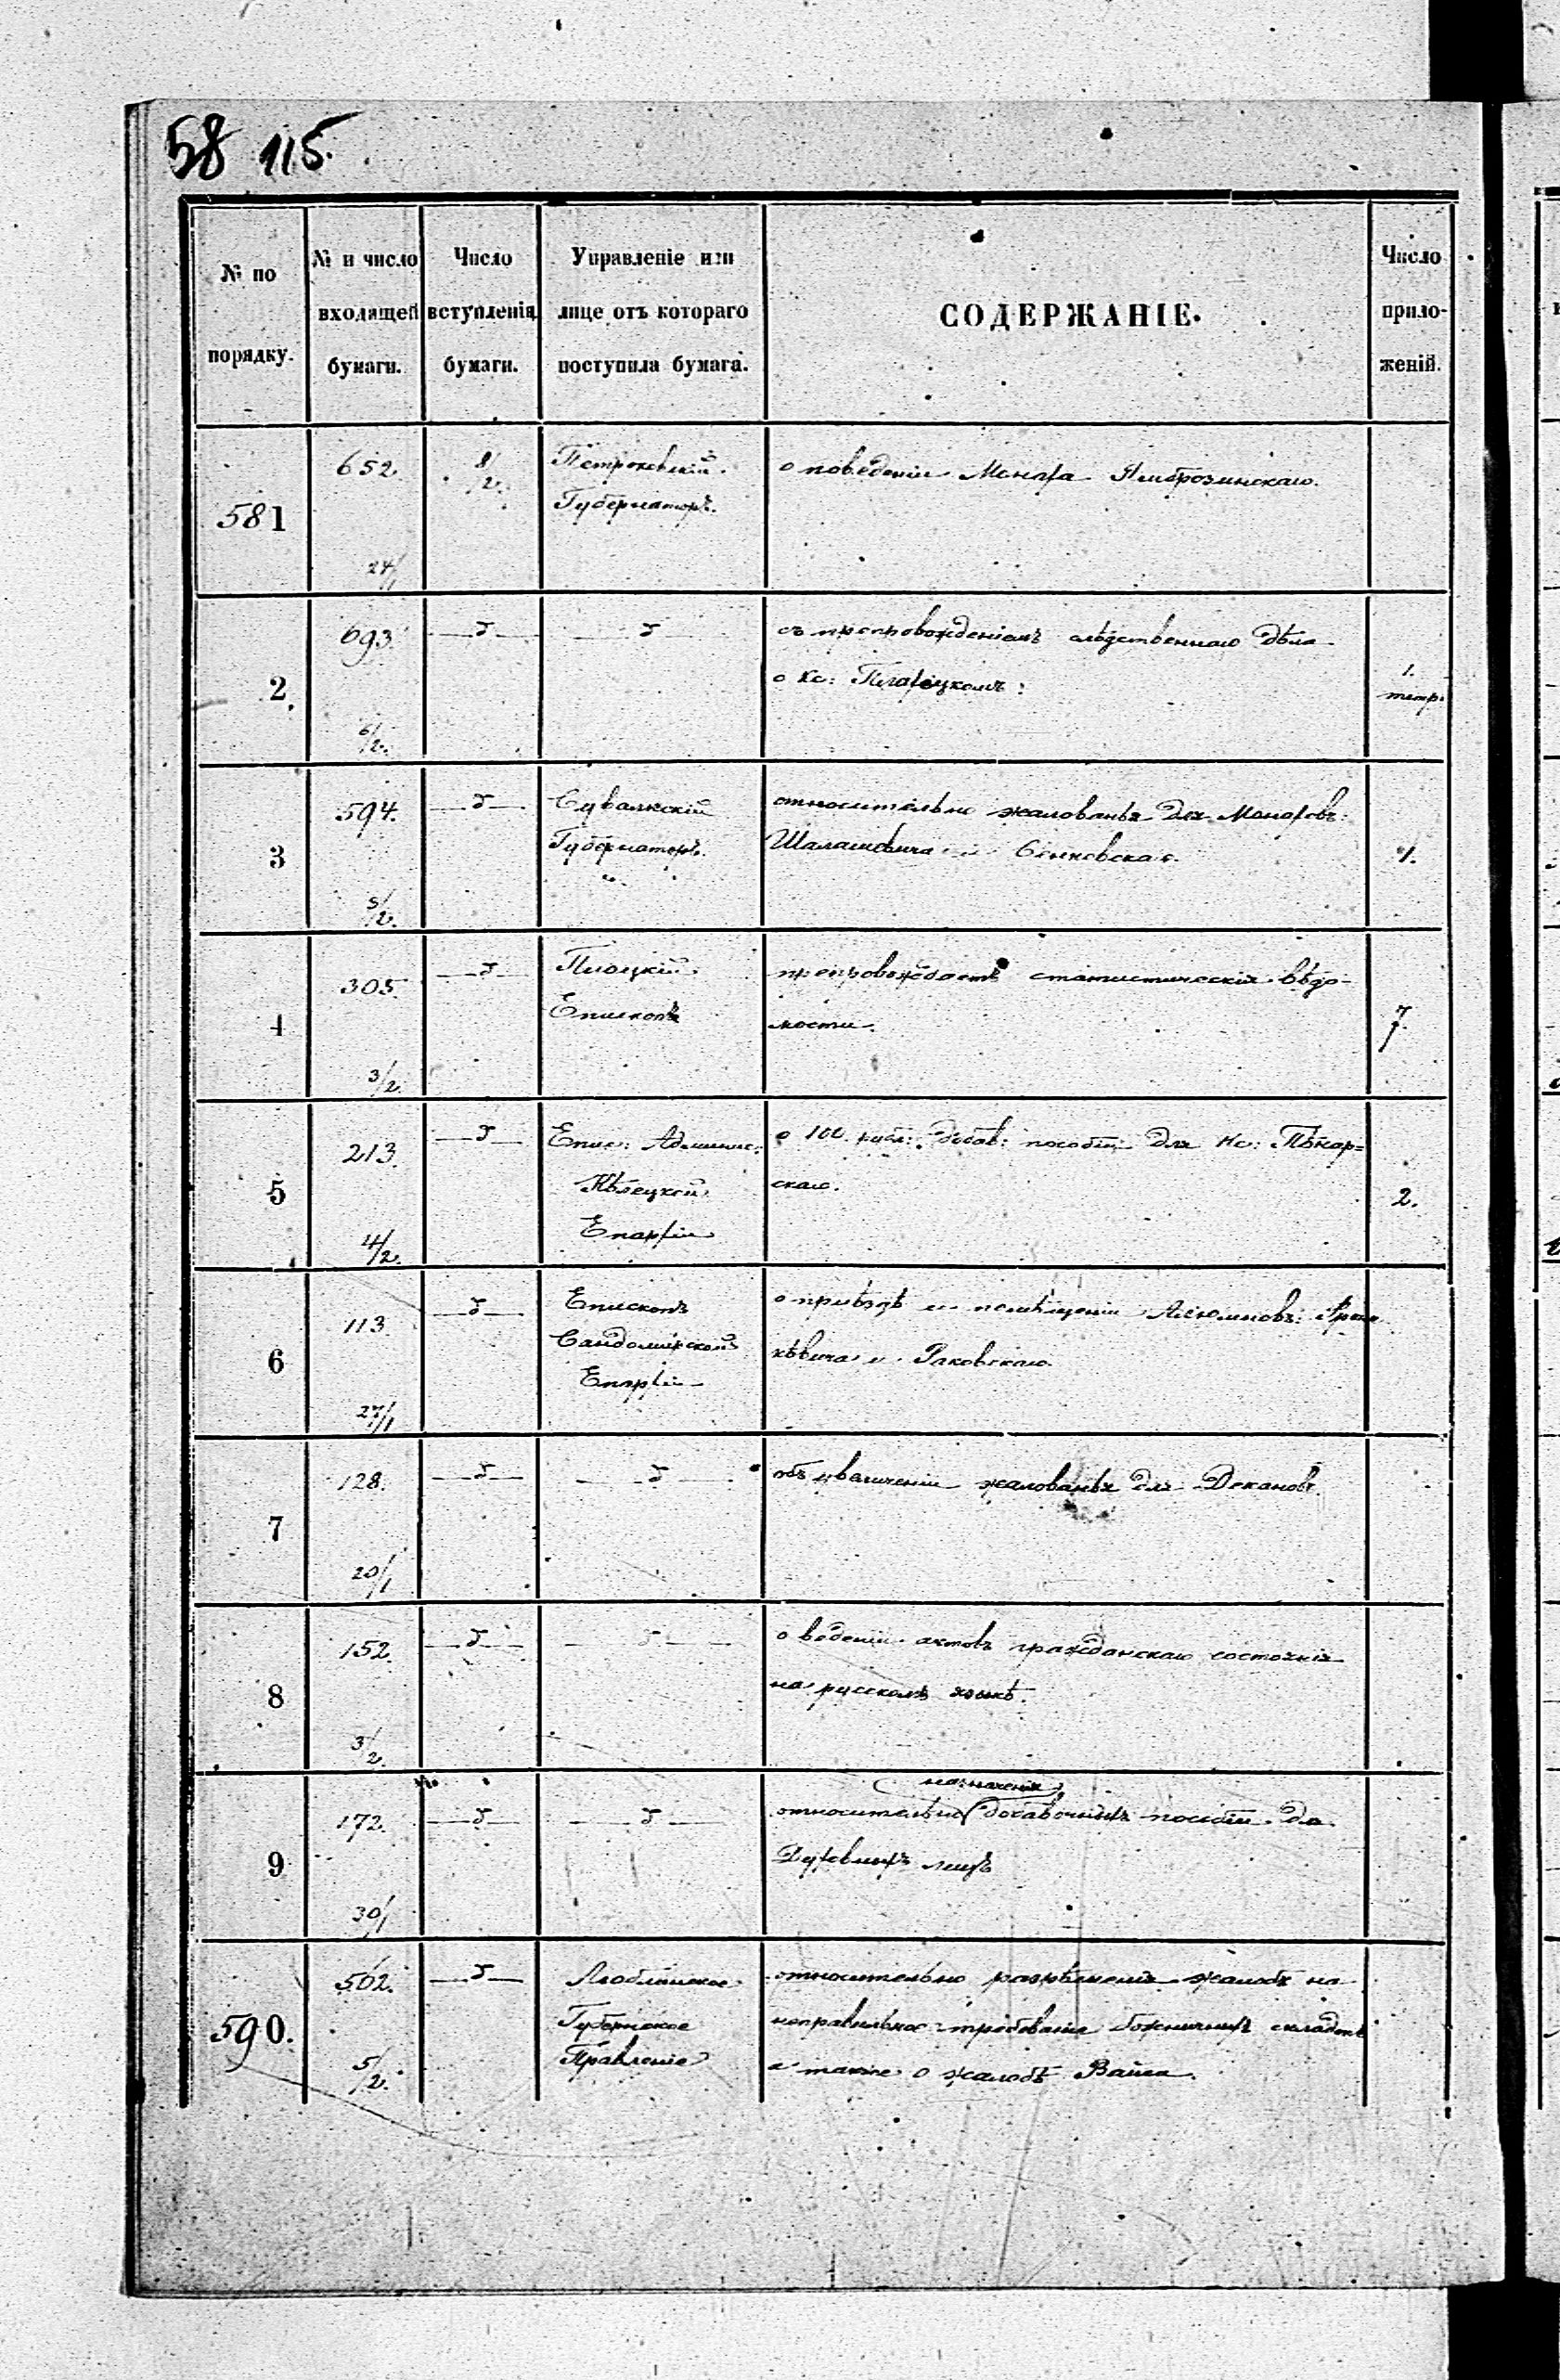 58 115.
№ по
порядку.
№ и число
входящей
бумаги.
Число
вступленія
бумаги.
Управленіе или
лице отъ котораго
поступила бумага.
СОДЕРЖАНІЕ.
Число
прило-
женій.
581
652
24/1
8/2
Петроковскій
Губернаторъ.
о поведеніи Монаха Амброзинскаго.
2
693
6/2.
съ препровожденіемъ слѣдственнаго дѣла
о Кс:
1.
тетр.
3
594.
5/2.
Сувалкскій
Губернаторъ.
относительно жалованья для Монаховъ:
и
1.
4
305
3/2.
Плоцкій
Епископъ
препровождаетъ статистическія вѣдо-
мости.
7.
5
213.
4/2.
Епис: Админис:
Кѣлецкой
Епархіи
о 100 рубл: добав: пособіи для Кс: Пѣкар=
скаго.
2.
6
113
27/1
Епископъ
Сандомирской
Епархіи
о пріѣздѣ и помѣщеніи
и Раковскаго.
7
128.
20/1
объ увеличеніи жалованья для Декановъ.
8
152.
3/2
о веденіи актовъ гражданскаго состоянія
на русскомъ языкѣ.
9
172.
30/1
назначенія
относительно добавочныхъ пособій для
Духовныхъ лицъ
590.
502.
5/2.
Люблинское
Губернское
Правленіе
относительно разрѣшенія жалобъ на
неправильное требованіе божничныхъ складокъ
а также о жалобѣ Вайса.